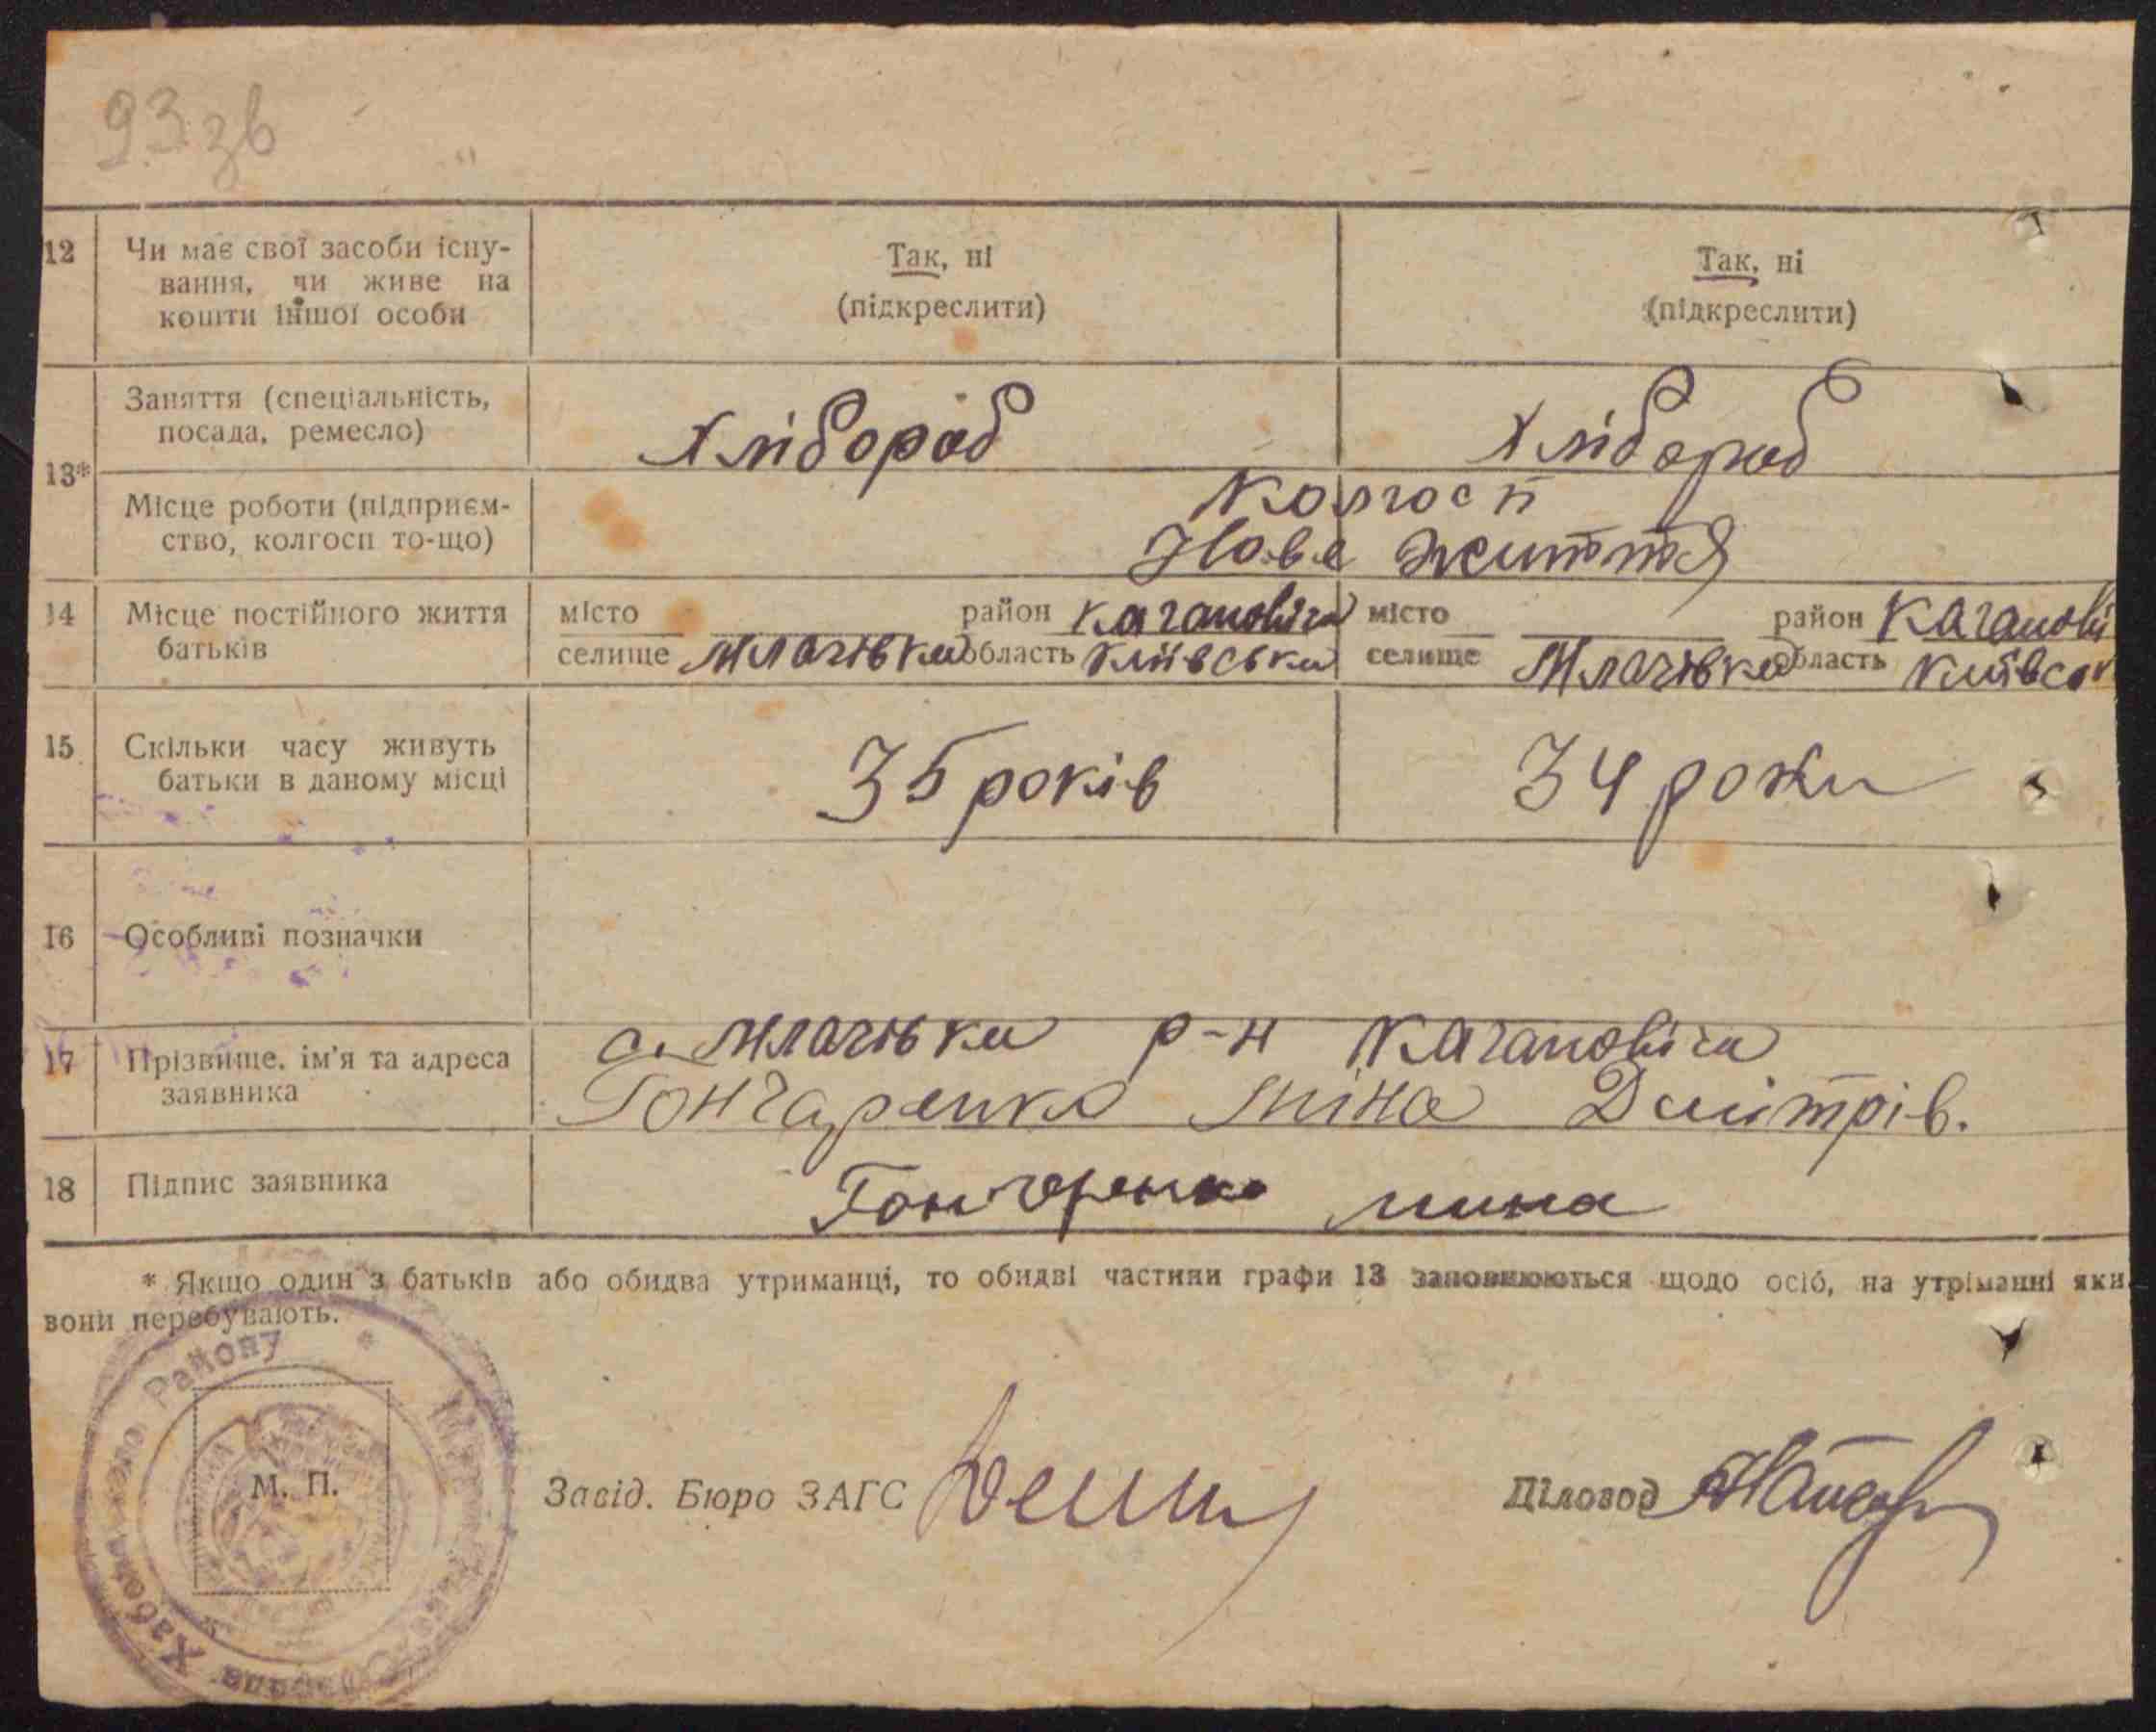 93 зв
12 Чи має свої засоби існу-
вання, чи живе на
кошти іншої особи
Так, ні
(підкреслити)
Так, ні
(підкреслити)
13*
Заняття (спеціальність,
посада, ремесло)
Хлібороб
Хлібороб
Місце роботи (підприєм-
ство, колгосп то-що)
Колгосп
Нове життя
14 Місце постійного життя
батьків
місто район Кагановіча
селище Млачівка область Київська
місто район Каганові
селище Млачівка область Київськ
15 Скільки часу живуть
батьки в даному місці
35 років
34 роки
16 Особливі позначки
17 Прізвище, ім'я та адреса
заявника
с. Млачівка р-н Кагановіча
Гончаренко Міна Дмитрів.
18 Підпис заявника
Гончаренко мина
* Якщо один з батьків або обидва утриманці, то обидві частини графи 13 заповнюються щодо осіб, на утріманні яки
вони перебувають.
Району
М. П.
Завід. Бюро ЗАГС
Діловод